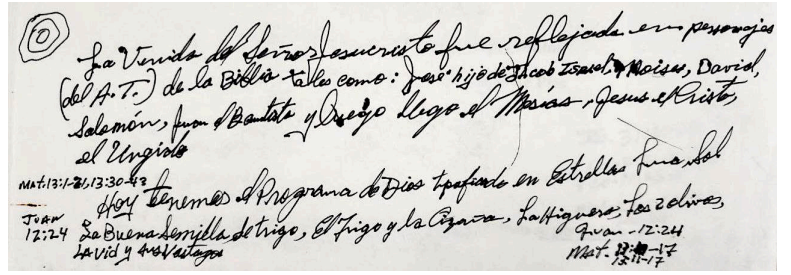 La Venida del Señor Jesucristo fue reflejada en personajes
(del A.T.) de la Biblia tales como: José hijo de Jacob Israel, Moises, David,
Salomón, Juan el Bautista y luego llego el Mesías, Jesus el Cristo,
el Ungido
MAT:13:1-21,13:30-43
Hoy tenemos el Programa de Dios tipificado en Estrellas Luna Sol
JUAN
12:24
La Buena Semilla de trigo, El Trigo y la Cizaña, La Higuera, Los 2 olivos,
LA Vid y sus Vastagos
Juan-12:24
Mat. -17
13:11-17